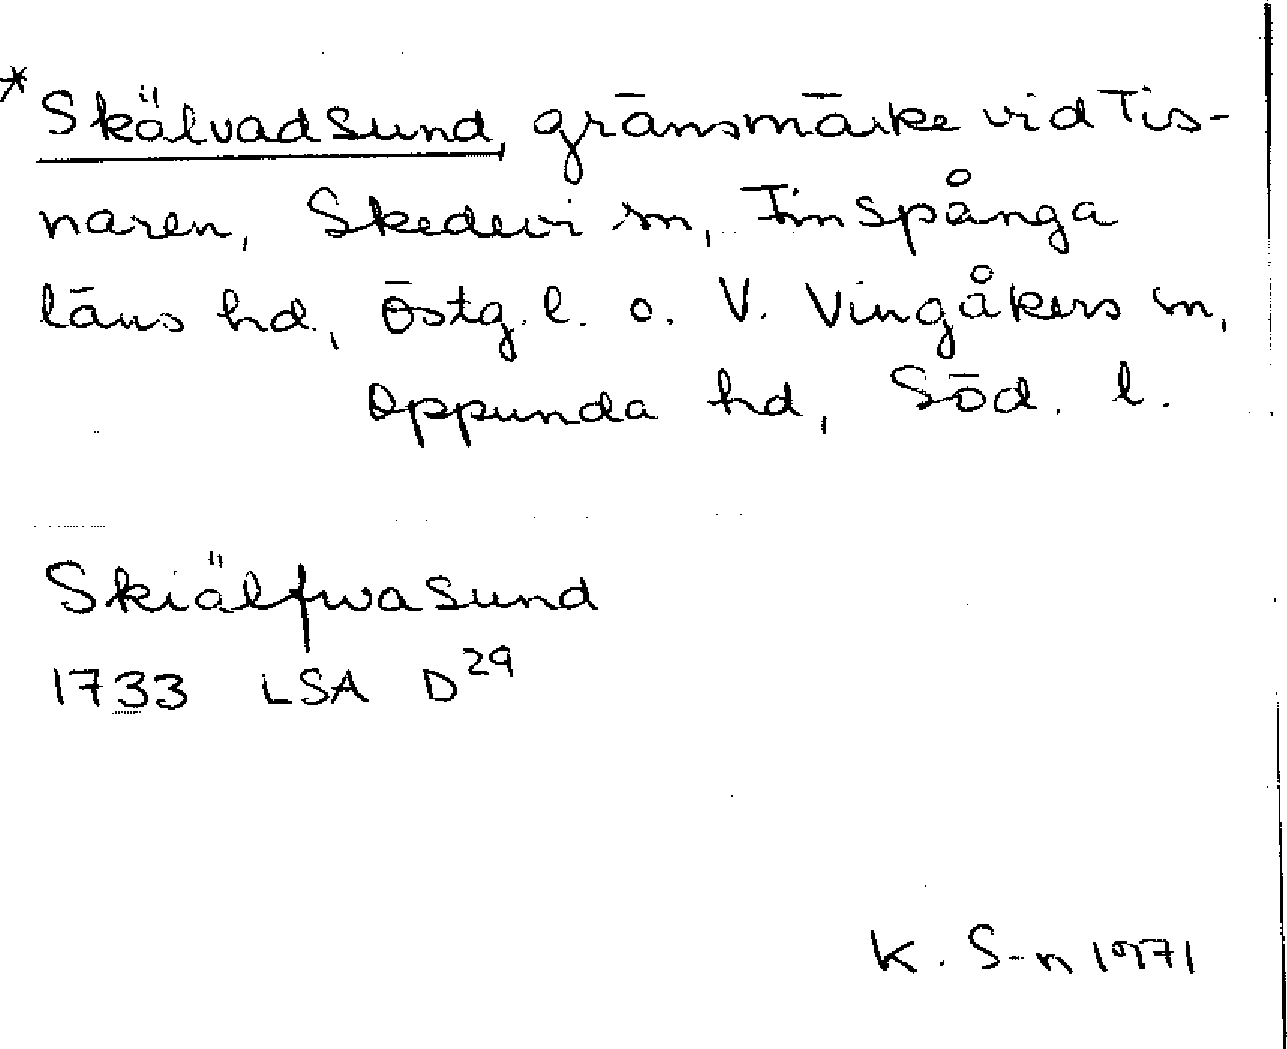 *Skälvadsund, gränsmärke vid Tis-
naren, Skedevi sn, Finspånga
läns hd, Östg. l. o. V. Vingåkers sn,
Oppunda hd, Söd. l.
Skiälfwasund
1733 LSA D29
K. S-n 1971